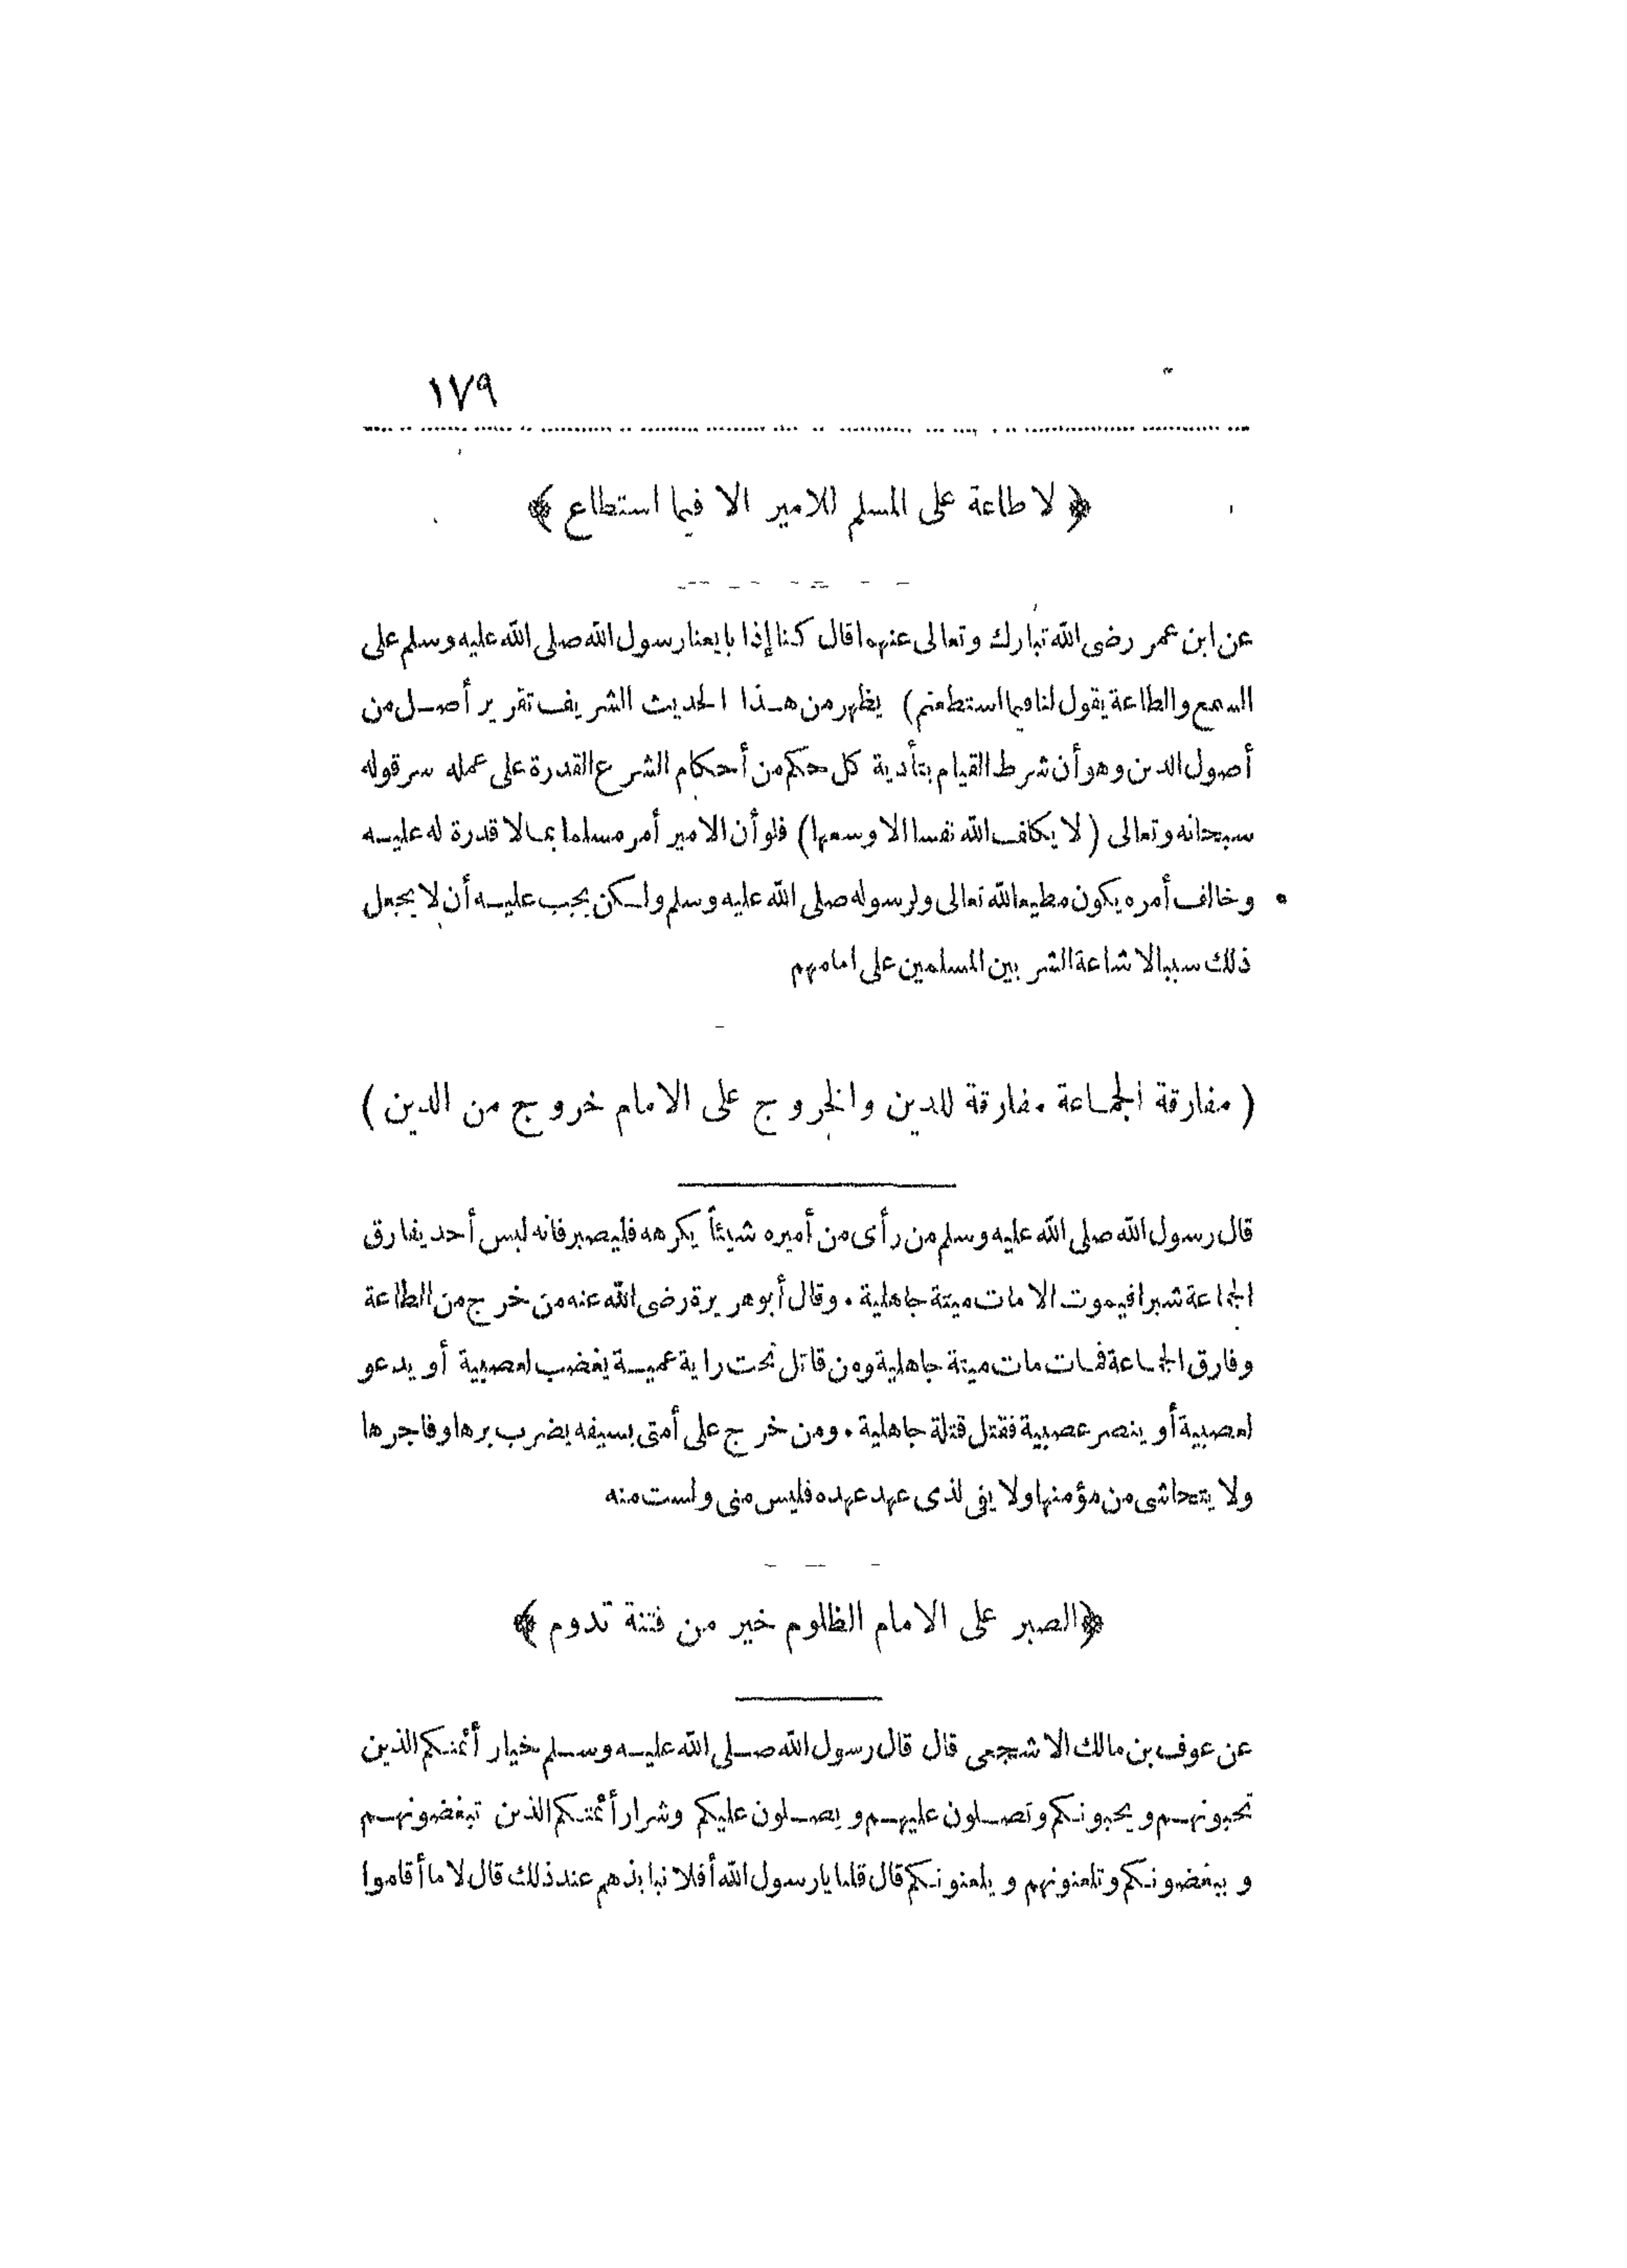 ١٧٩
﴿ لا طاعة على المسلم للامير الا فيما استطاع ﴾
عن ابن عمر رضى الله تبارك وتعالى عنهما قال كنا إذا بايعنا رسول الله صلى الله عليه وسلم على
السمع والطاعة يقول لنا فيما استطعتم) يظهر من هذا الحديث الشريف تقرير أصل من
أصول الدين وهو أن شرط القيام بتأدية كل حكم من أحكام الشرع القدرة على عمله سر قوله
سبحانه وتعالى (لا يكلف الله نفسا الا وسعها) فلو أن الامير أمر مسلما بما لا قدرة له عليه
وخالف أمره يكون مطيعا لله تعالى ولرسوله صلى الله عليه وسلم ولكن يجب عليه أن لا يجعل
ذلك سببا لاشاعة الشر بين المسلمين على امامهم
( مفارقة الجماعة مفارقة للدين والخروج على الامام خروج من الدين )
قال رسول الله صلى الله عليه وسلم من رأى من أميره شيئاً يكرهه فليصبر فانه ليس أحد يفارق
الجماعة شبرا فيموت الا مات ميتة جاهلية . وقال أبو هريرة رضى الله عنه من خرج من الطاعة
وفارق الجماعة فمات مات ميتة جاهلية ومن قاتل تحت راية عمية يغضب لعصبية أو يدعو
لعصبية أو ينصر عصبية فقتل قتلة جاهلية . ومن خرج على أمتى بسيفه يضرب برها وفاجرها
ولا يتحاشى من مؤمنها ولا يفى لذى عهد عهده فليس منى ولست منه
﴿الصبر على الامام الظلوم خير من فتنة تدوم ﴾
عن عوف بن مالك الاشجعى قال قال رسول الله صلى الله عليه وسلم خيار أئمتكم الذين
تحبونهم ويحبونكم وتصلون عليهم ويصلون عليكم وشرار أئمتكم الذين تبغضونهم
ويبغضونكم وتلعنونهم ويلعنونكم قال قلنا يا رسول الله أفلا ننابذهم عند ذلك قال لا ما أقاموا